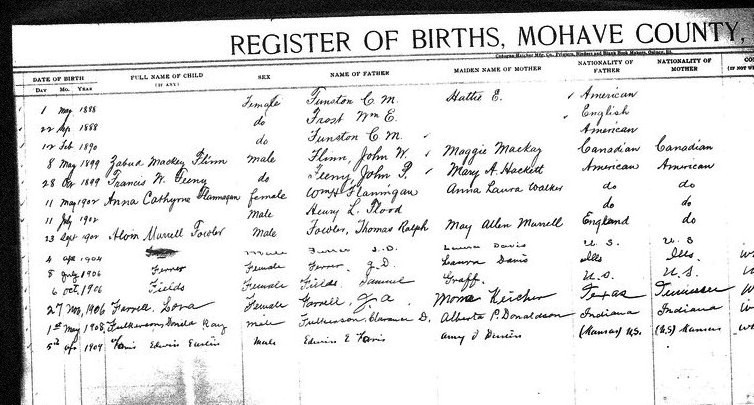 REGISTER OF BIRTHS, MOHAVE COUNTY,
DATE OF BIRTH FULL NAME OF CHILD SEX NAME OF FATHER MAIDEN NAME OF MOTHER NATIONALITY OF FATHER NATIONALITY OF MOTHER
DAY MO. YEAR (IF ANY)
1 May 1888 Female Funston C. M. Hattie E. American
22 1888 do Frost Wm E. English
12 Feb 1890 do Funston C. M. American
8 May 1899 Zabud Mackey Flinn male Flinn, John W. Maggie Mackay Canadian Canadian
28 Oct 1899 Francis W. Feeny do Feeny, John P. Mary A. Hackett American American
11 May 1902 Anna Cathyrne Flannagan female Wm H. Flannigan Anna Laura Walker do do
11 July 1902 Male Henry L. Flood do do
23 Sept 1902 Alvin Murrell Fowler Male Fowler, Thomas Ralph May Allen Murrell England do
4 Apr 1904 Male J. D. Laura Davis U. S. U. S
5 July 1906 Female J. D. Laura Davis Ills Ills.
6 Oct 1906 Fields Female Fields, Samuel Graff. U.S. U.S.
27 Nov. 1906 Farrell, Lona Female Farrell, J. A. Mona Kircher Texas Tennessee
1st May 1908 Ray male Fulkerson, Clarence D. Alberta P. Donaldson Indiana Indiana
5th 1909 Faris Edwin male Edwin E Faris Amy (Kansas) U.S. (U.S) Kansas